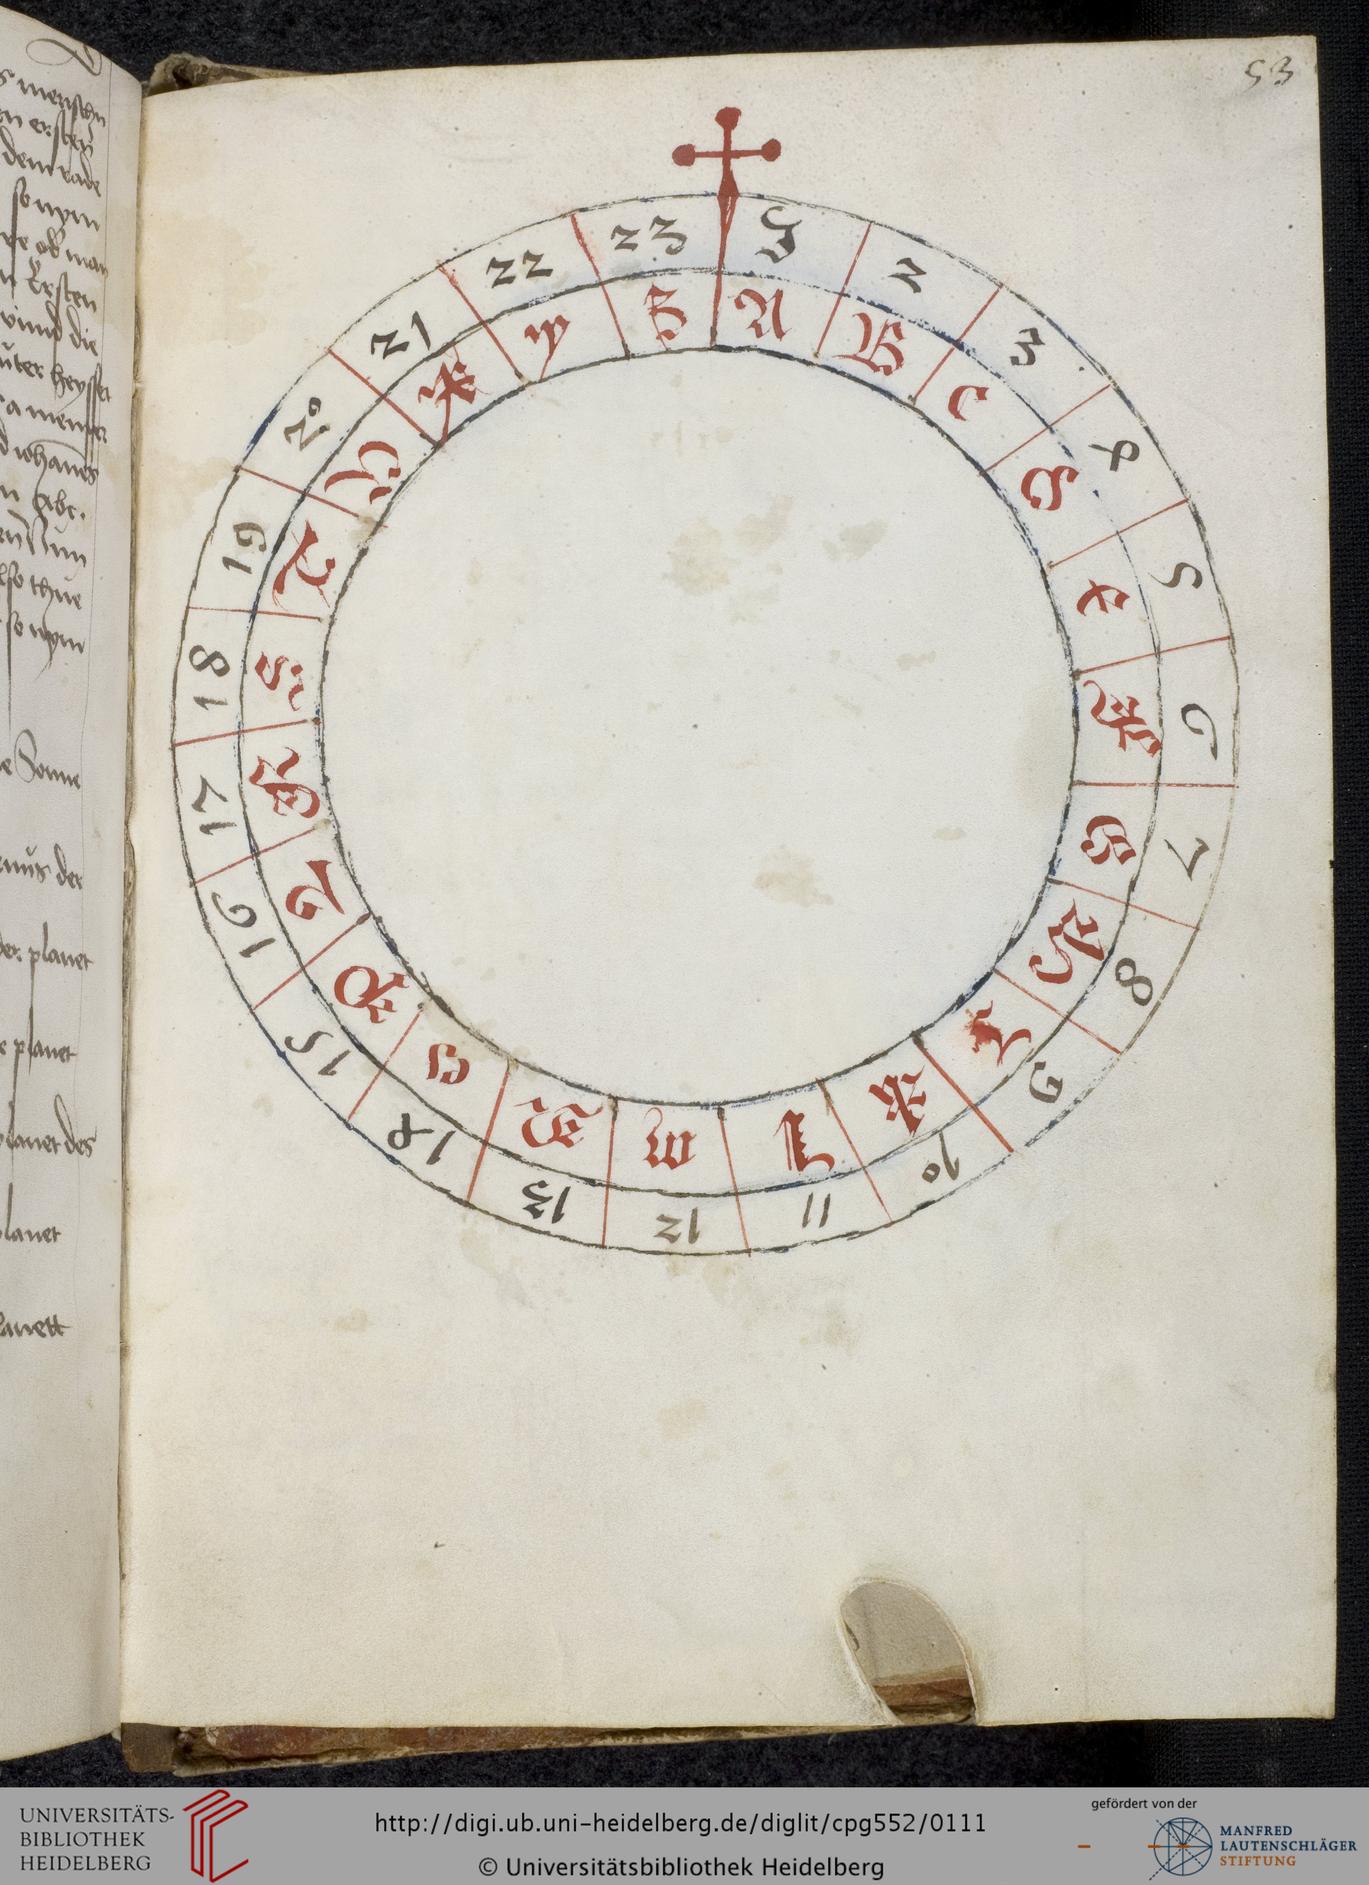 s menschn
en ersten
dem rade
so nym
re ob man
n Ersten
vnnd die
heysset
a memer
d iohannes
n abc.
lso thue
so nym
e Sonne
enus der
der planet
e planet
planet des
planet
lanett
53
1 2 3 4 5 6 7 8 9 10 11 12 13 14 15 16 17 18 19 20 21 22 23
A B C D E F G H I K L M N O P Q R S T V X Y Z
UNIVERSITÄTS-
BIBLIOTHEK
HEIDELBERG
http://digi.ub.uni-heidelberg.de/diglit/cpg552/0111
© Universitätsbibliothek Heidelberg
gefördert von der
MANFRED
LAUTENSCHLÄGER
STIFTUNG